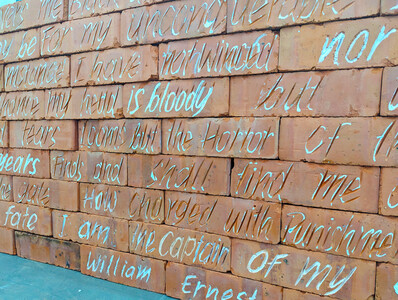 me
be For my unconquerable
mstance I have not winced nor
my head is bloody but
tears Looms but the Horror of
years Finds and shall find me
gate How charged with Punishme
fate I am the Captain of my
William Ernest